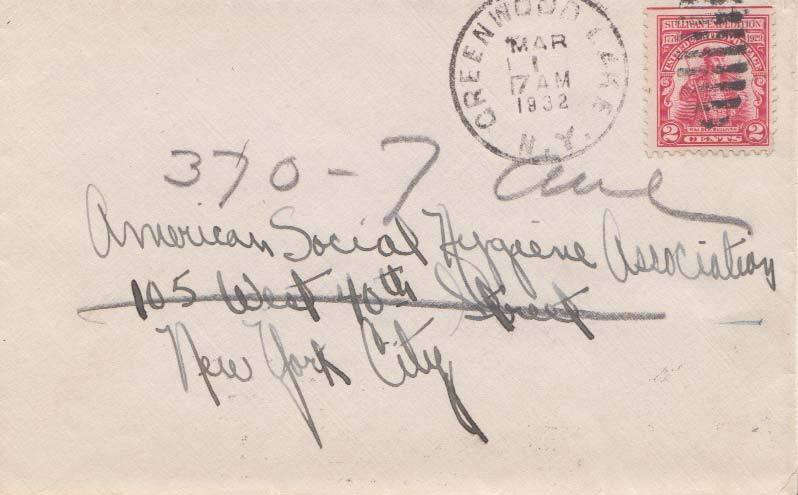 GREENWOOD LAKE
N.Y.
MAR
1
7 AM
1932
SULLIVAN EXPEDITION
1779 1929
UNITED STATES POSTAGE
2 CENTS 2
370-7 Ave
American Social Hygiene Association
105 West 40th Street
New York City